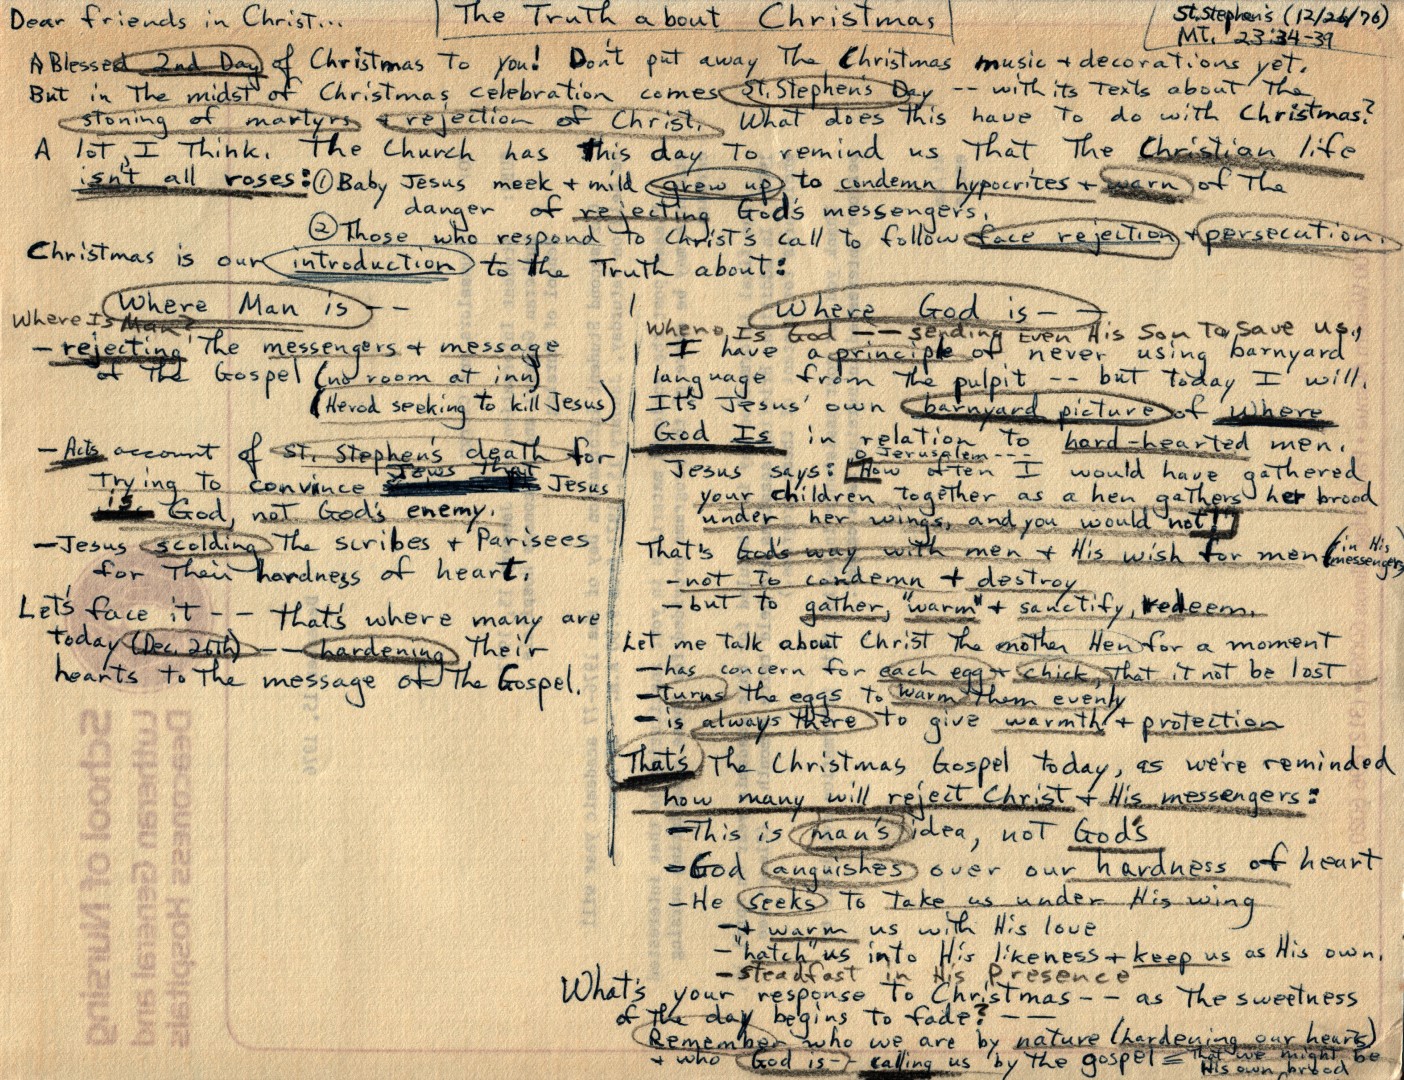 Dear friends in Christ...
The Truth about Christmas
St. Stephen's (12/26/76)
MT. 23:34-39
A Blessed 2nd Day of Christmas to you! Don't put away the Christmas music + decorations yet.
But in the midst of Christmas celebration comes St. Stephen's Day -- with its texts about the
stoning of martyrs + rejection of Christ. What does this have to do with Christmas?
A lot, I think. The Church has this day to remind us that the Christian life
isn't all roses: ① Baby Jesus meek + mild grew up to condemn hypocrites + warn of the
danger of rejecting God's messengers.
② Those who respond to Christ's call to follow face rejection + persecution.
Christmas is our introduction to the Truth about:
Where Man is --
Where Is Man?
- rejecting the messengers + message
of the Gospel (no room at inn)
(Herod seeking to kill Jesus)
- Acts account of St. Stephen's death for
trying to convince Jews that Jesus
is God, not God's enemy.
- Jesus scolding the scribes + Parisees
for their hardness of heart.
Let's face it -- that's where many are
today (Dec. 26th) -- hardening their
hearts to the message of the Gospel.
Where God is --
Where Is God -- sending Even His Son To Save us.
I have a principle of never using barnyard
language from the pulpit -- but today I will.
It's Jesus' own barnyard picture of where
God Is in relation to hard-hearted men.
O Jerusalem ---
Jesus says: How often I would have gathered
your children together as a hen gathers her brood
under her wings, and you would not!
That's God's way with men + His wish for men (in His messengers)
- not to condemn + destroy
- but to gather, "warm" + sanctify, redeem.
Let me talk about Christ the mother Hen for a moment
- has concern for each egg + chick, that it not be lost
- turns the eggs to warm them evenly
- is always there to give warmth + protection
That's the Christmas Gospel today, as we're reminded
how many will reject Christ + His messengers:
- This is man's idea, not God's
- God anguishes over our hardness of heart
- He seeks to take us under His wing
- + warm us with His love
- "hatch" us into His likeness + keep us as His own.
- steadfast in His Presence
What's your response to Christmas -- as the sweetness
of the day begins to fade? --
Remember who we are by nature (hardening our hearts)
+ who God is -- calling us by the gospel = that we might be
His own brood
Deaconess Hospitals
Lutheran General and
School of Nursing